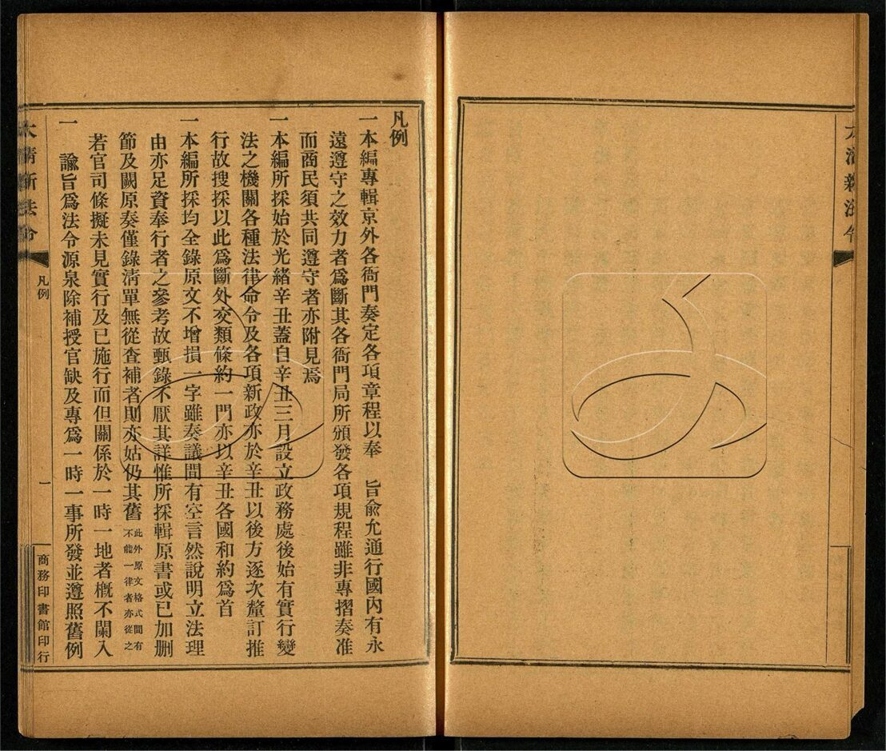 大清新法令
凡例
一本編專輯京外各衙門奏定各項章程以奉　旨兪允通行國內有永
遠遵守之效力者爲斷其各衙門局所頒發各項規程雖非專摺奏准
而商民須共同遵守者亦附見焉
一本編所採始於光緒辛丑蓋自辛丑三月設立政務處後始有實行變
法之機關各種法律命令及各項新政亦於辛丑以後方逐次釐訂推
行故搜採以此爲斷外交類條約一門亦以辛丑各國和約爲首
一本編所採均全錄原文不增損一字雖奏議間有空言然說明立法理
由亦足資奉行者之參考故甄錄不厭其詳惟所採輯原書或已加刪
節及闕原奏僅錄淸單無從查補者則亦姑仍其舊此外原文格式間有不能一律者亦從之
若官司條擬未見實行及已施行而但關係於一時一地者槪不闌入
一　諭旨爲法令源泉除補授官缺及專爲一時一事所發並遵照舊例
大清新法令
凡例
一
商務印書館印行